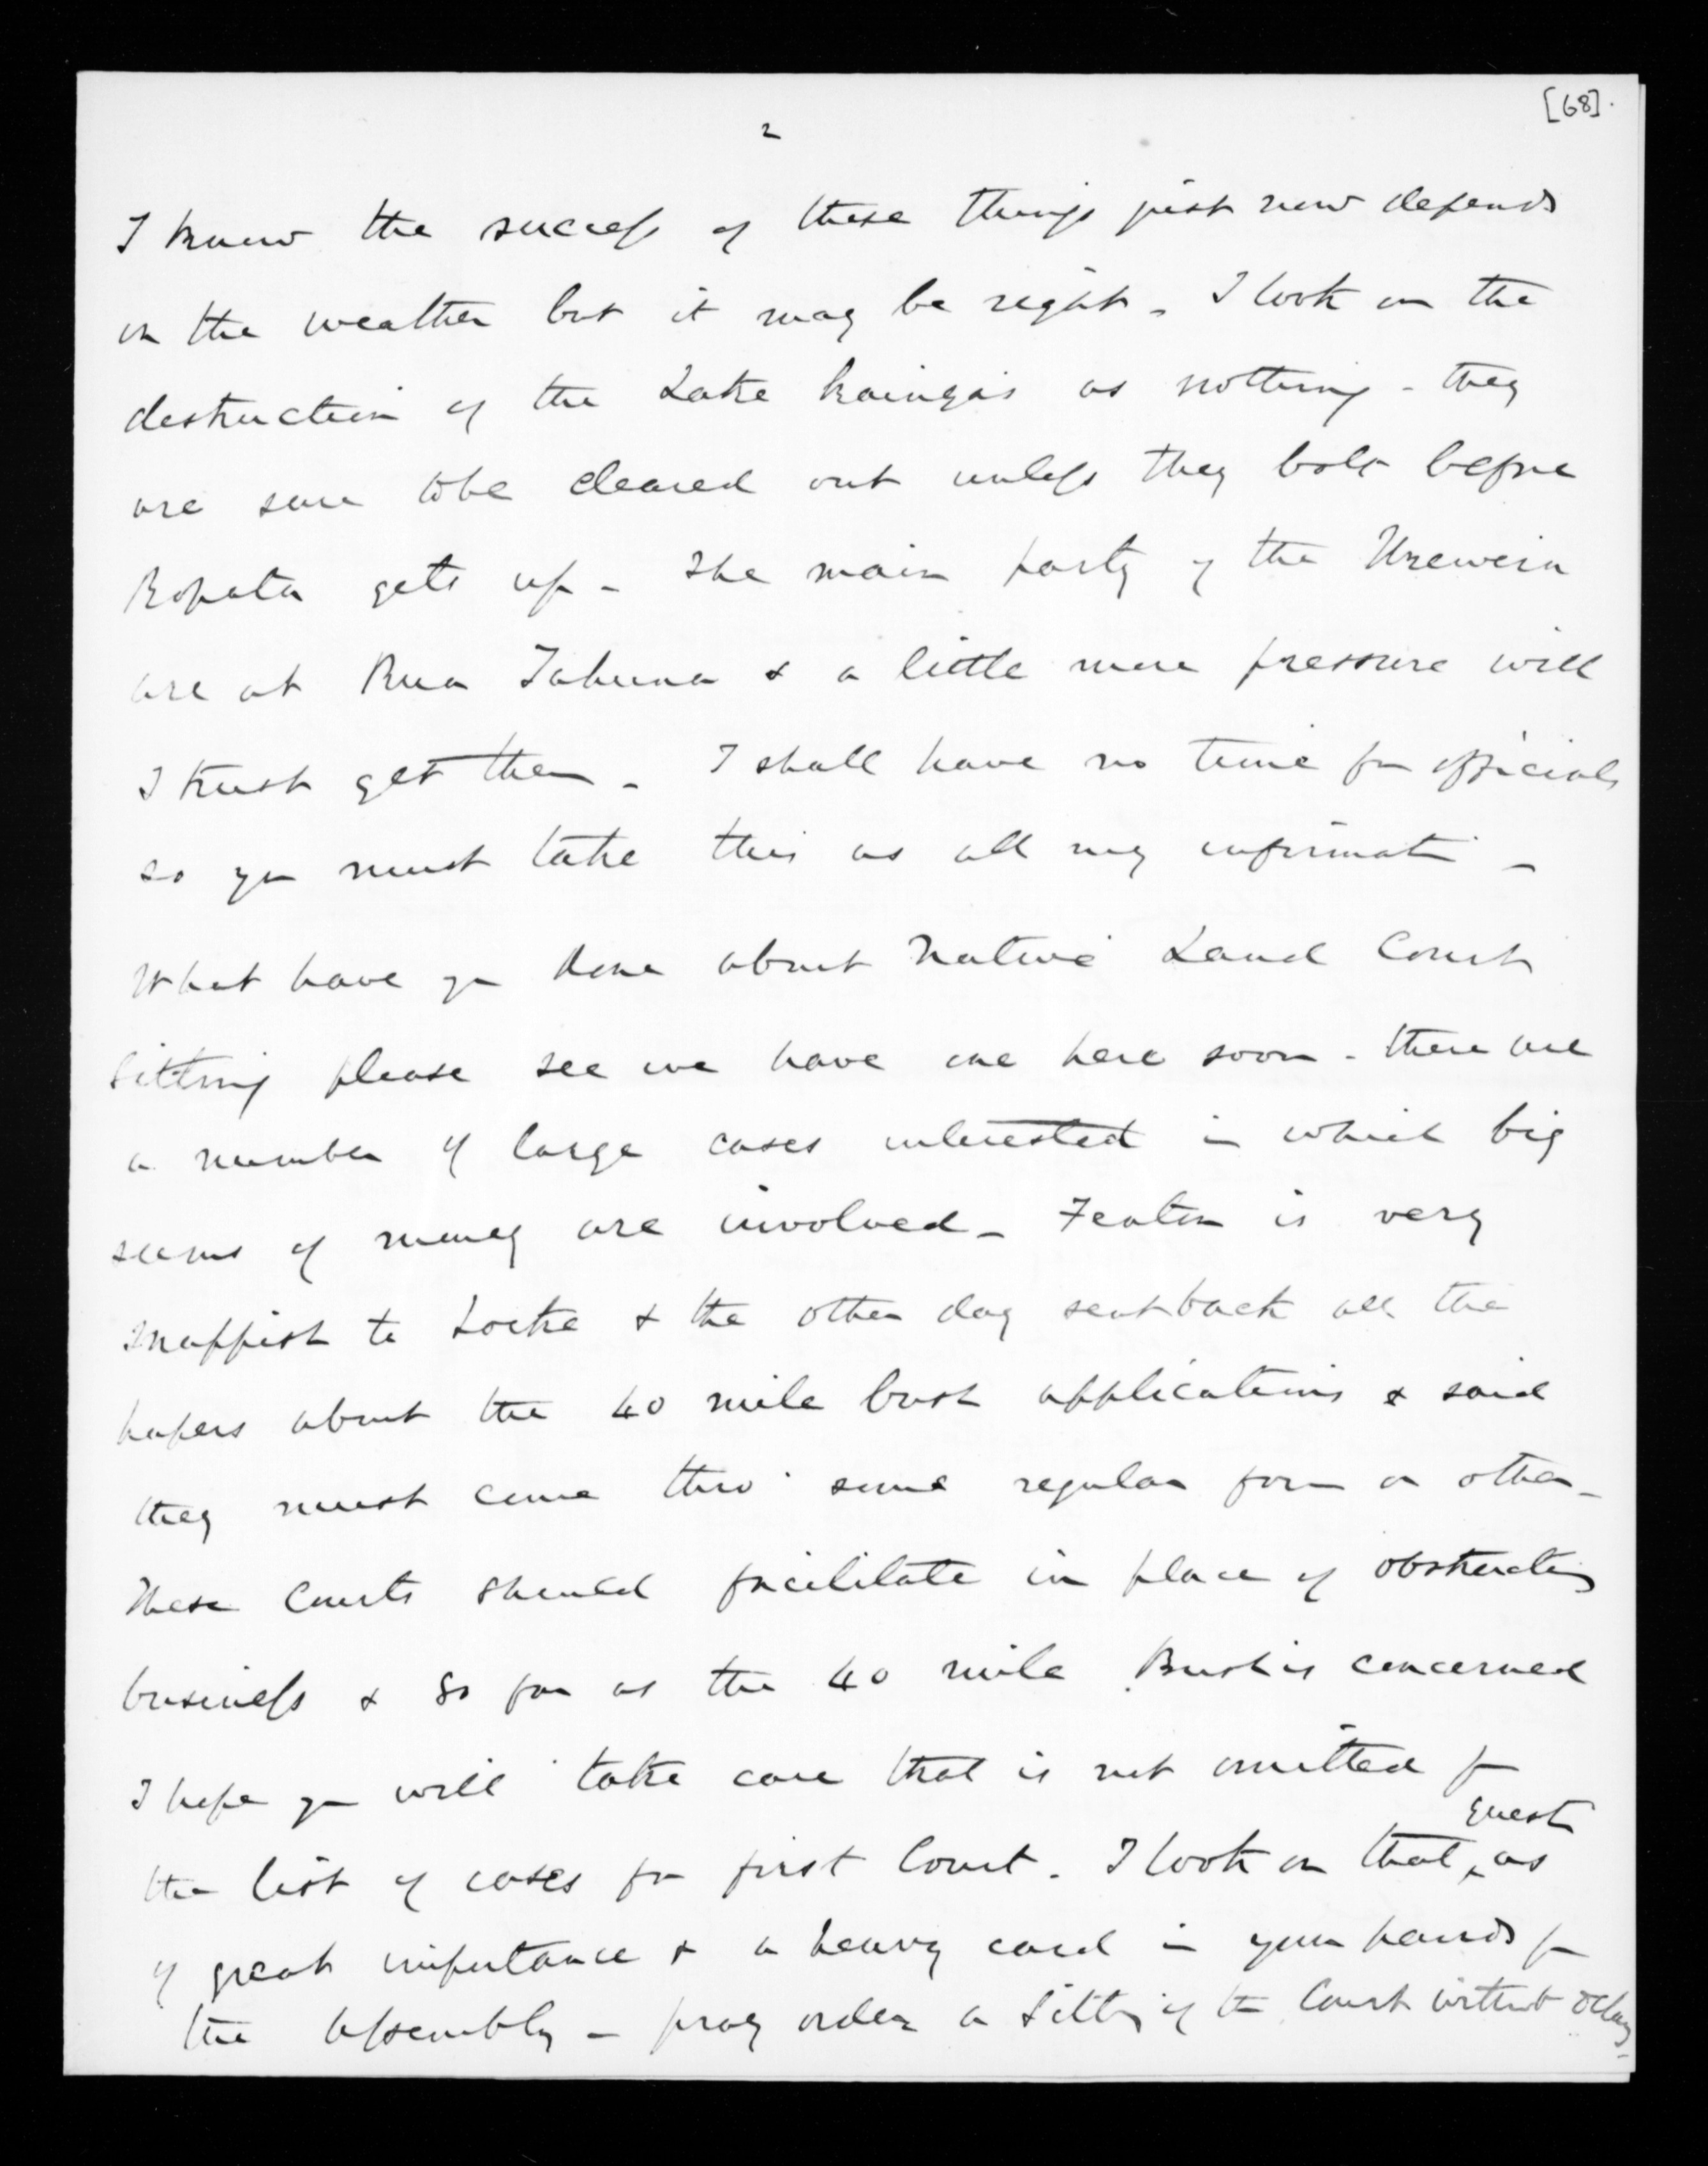 [68].
2
I know the success of these things just now depends
on the weather but it may be right - I look on the
destruction of the Lake kaingas as nothing - they
are sure to be cleared out unless they bolt before
Ropata gets up - The main party of the Urewera
are at Rua Tahuna & a little more pressure will
I trust get them - I shall have no time for officials
so you must take this as all my informati -
What have you done about Native Land Court
Sitting please see we have one here soon - there are
a number of large cases interested in which big
sums of money are involved - Fenton is very
snappish to Locke & the other day sent back all the
papers about the 40 mile bush applications & said
they must come thro' some regular form or other -
These Courts should facilitate in place of obstructing
business & so far as the 40 mile Bush is concerned
I hope you will take care that is not omitted for
the list of cases for first Court. I look on that
quest
as
of great importance & a heavy card in your hands for
the Assembly - pray order a Sitting of the Court without delay -